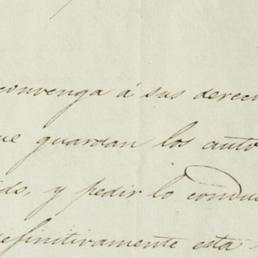 convenga á sus derec
que guardan los auto
ds, y pedir lo condu
efinitivamente esta